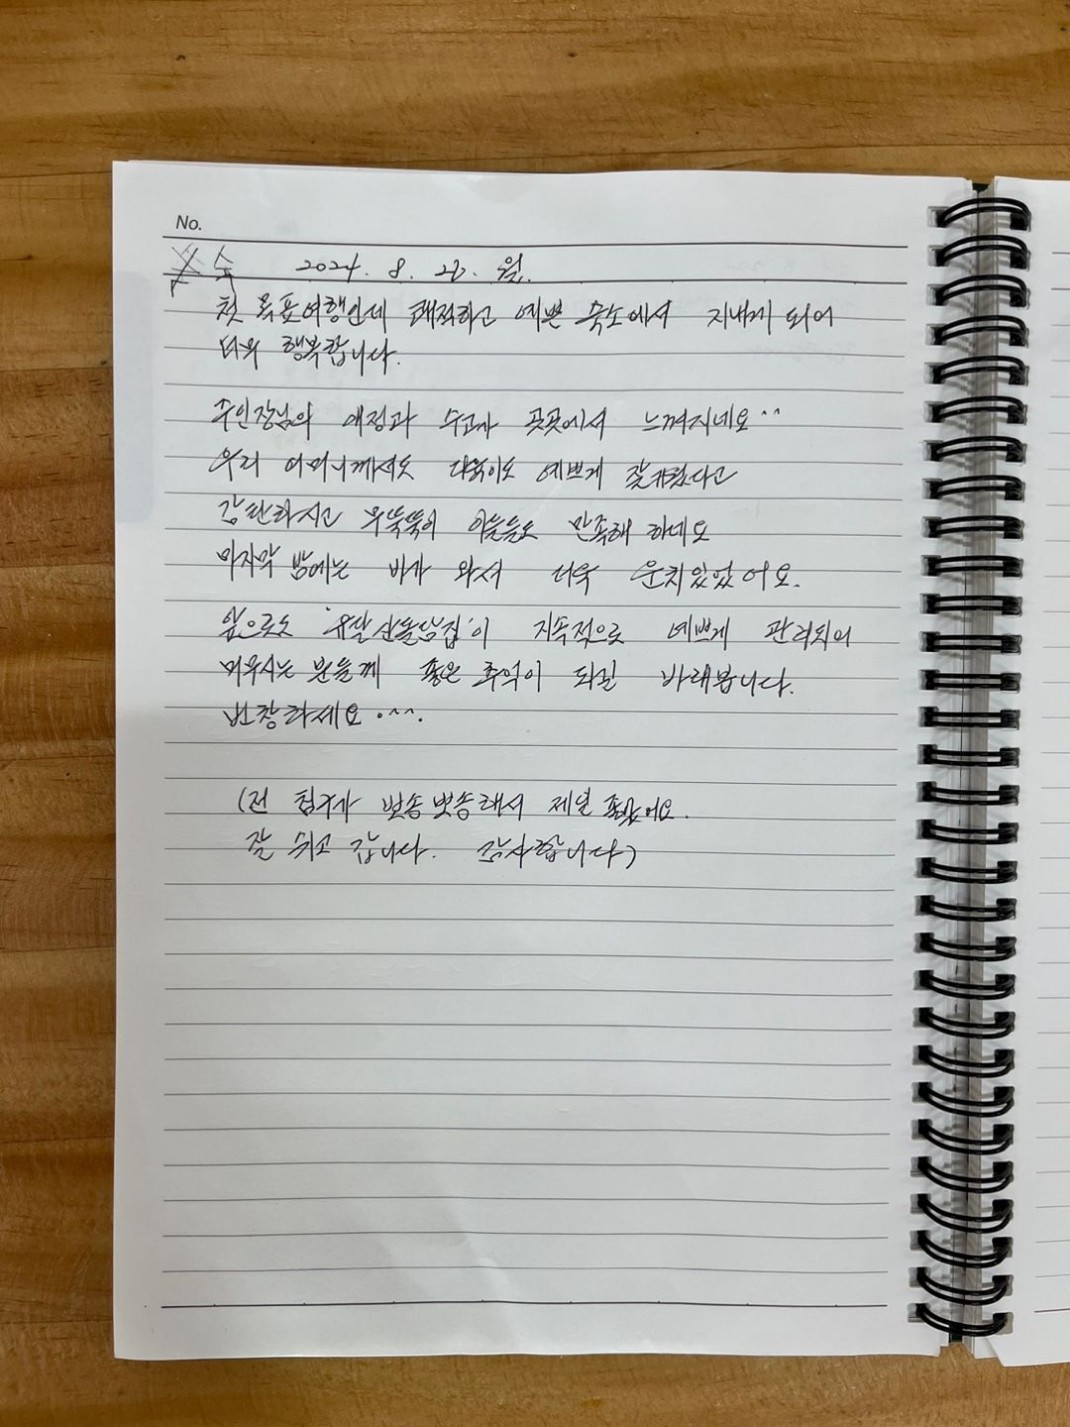 No.
2024. 8. 26. 월.
첫 목포여행인데 쾌적하고 예쁜 숙소에서 지내게 되어
더욱 행복합니다.
주인장님의 애정과 수고가 곳곳에서 느껴지네요^^
우리 어머니께서도 다육이도 예쁘게 잘키웠다고
감탄하시고 무뚝뚝이 아들들도 만족해 하네요
마지막 밤에는 비가 와서 더욱 운치있었어요.
앞으로도 '유달산돌담집'이 지속적으로 예쁘게 관리되어
머무시는 분들께 좋은 추억이 되길 바래봅니다.
번창하세요.^^.
(전 침구가 뽀송뽀송해서 제일 좋았어요.
잘 쉬고 갑니다. 감사합니다)